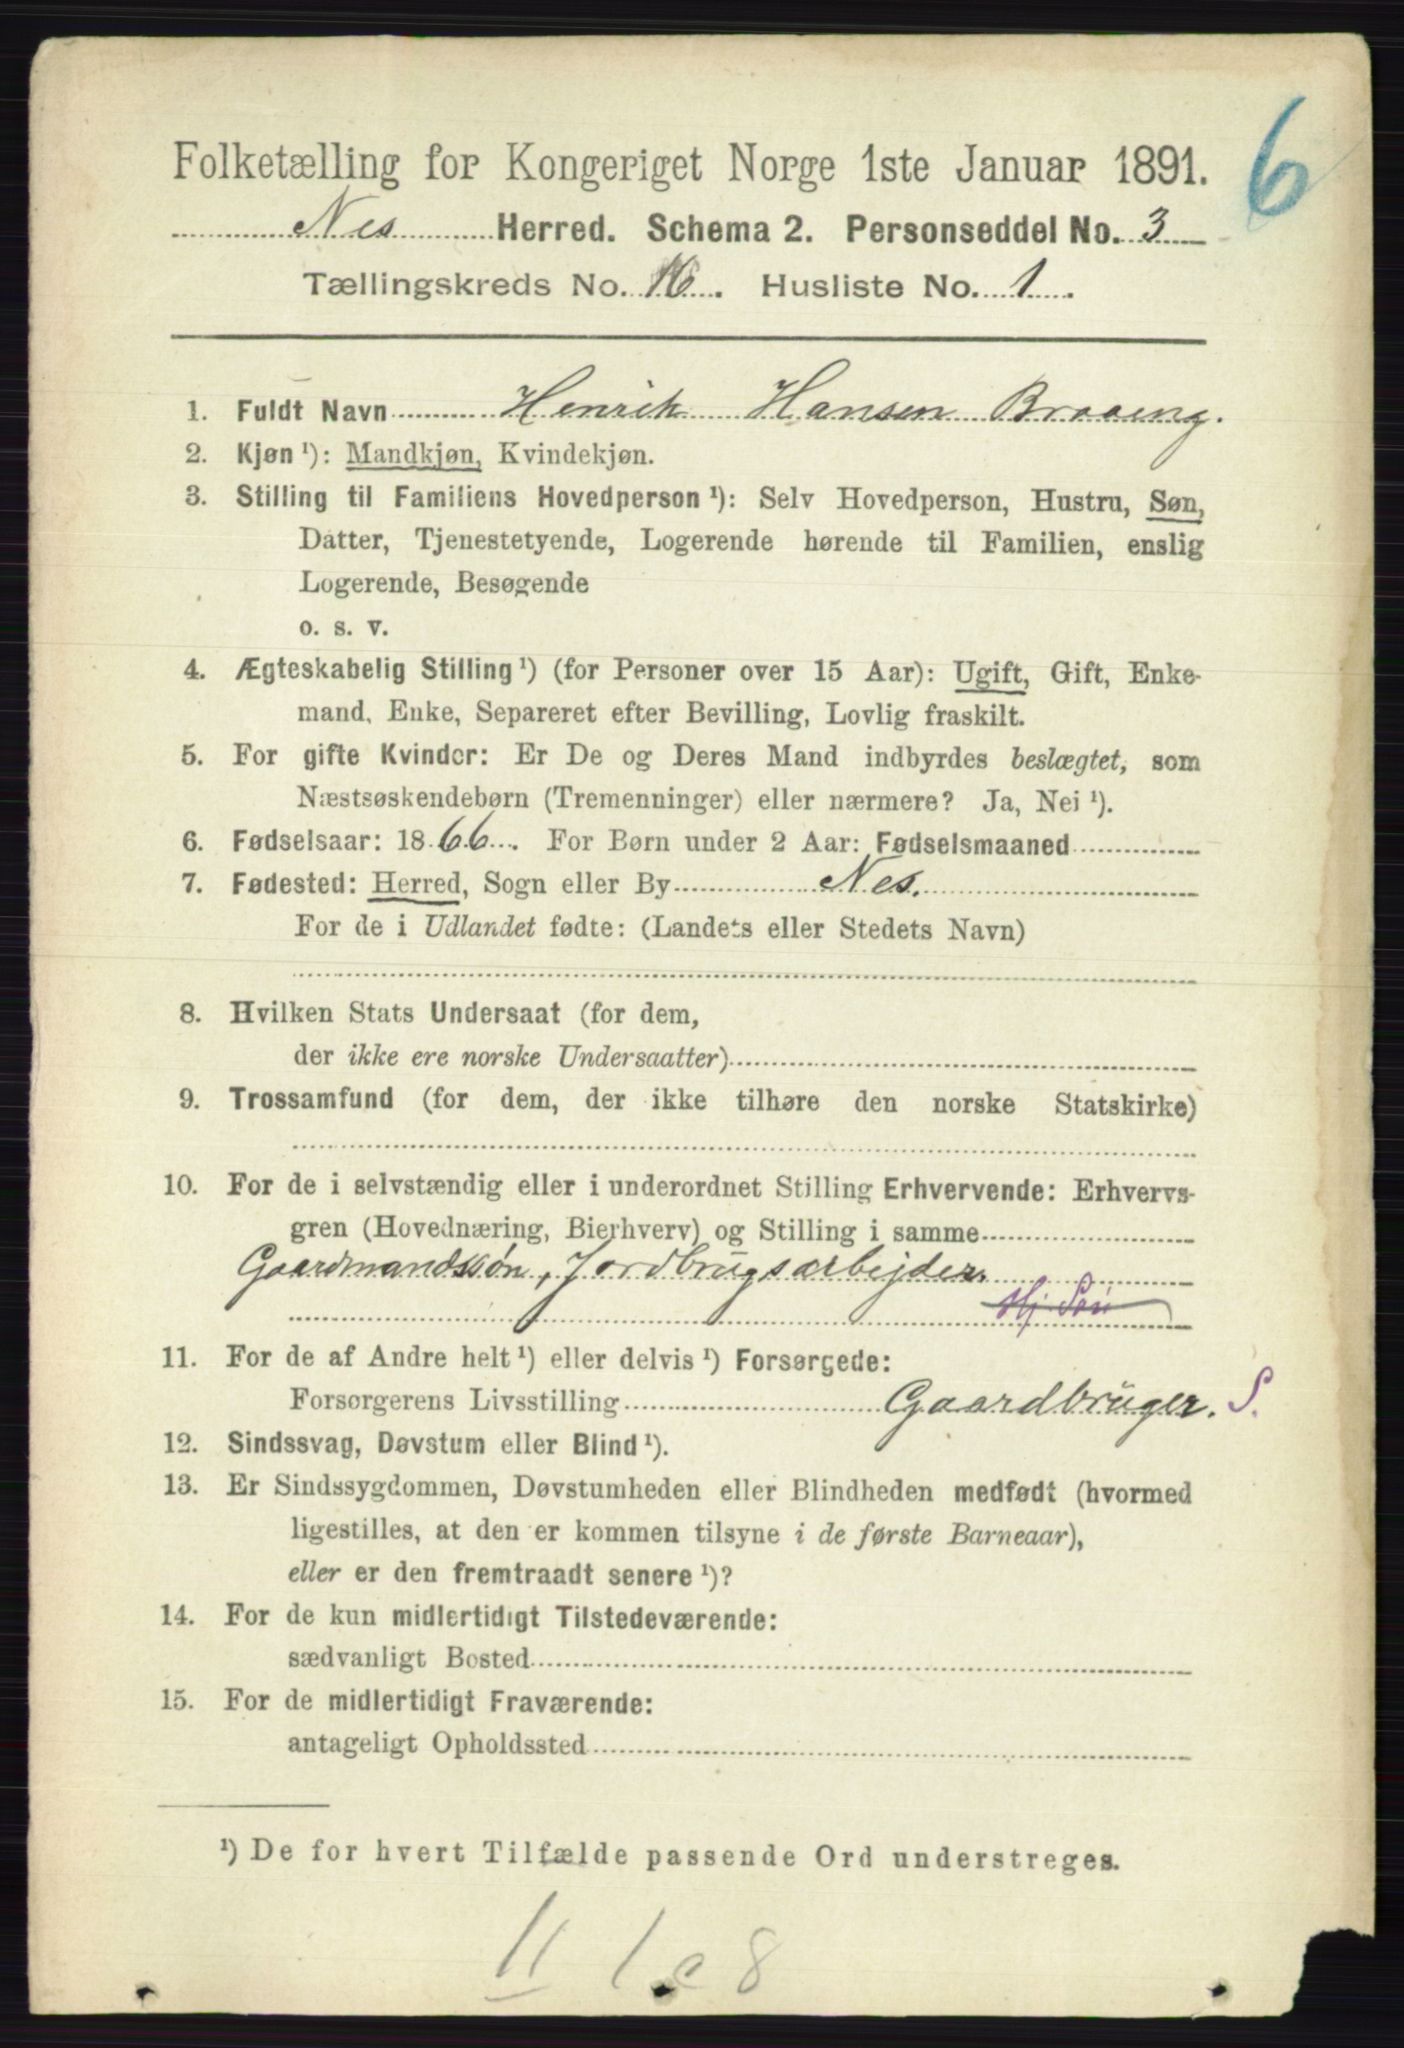 6
Folketælling for Kongeriget Norge 1ste Januar 1891.
Nes Herred. Schema 2. Personseddel No. 3
Tællingskreds No. 16. Husliste No. 1.
1. Fuldt Navn Henrik Hansen Braaeng.
2. Kjøn ¹): Mandkjøn, Kvindekjøn.
3. Stilling til Familiens Hovedperson ¹): Selv Hovedperson, Hustru, Søn,
Datter, Tjenestetyende, Logerende hørende til Familien, enslig
Logerende, Besøgende
o. s. v.
4. Ægteskabelig Stilling ¹) (for Personer over 15 Aar): Ugift, Gift, Enke-
mand, Enke, Separeret efter Bevilling, Lovlig fraskilt.
5. For gifte Kvinder: Er De og Deres Mand indbyrdes beslægtet, som
Næstsøskendebørn (Tremenninger) eller nærmere? Ja, Nei ¹).
6. Fødselsaar: 1866. For Børn under 2 Aar: Fødselsmaaned
7. Fødested: Herred, Sogn eller By Nes.
For de i Udlandet fødte: (Landets eller Stedets Navn)
8. Hvilken Stats Undersaat (for dem,
der ikke ere norske Undersaatter)
9. Trossamfund (for dem, der ikke tilhøre den norske Statskirke)
10. For de i selvstændig eller i underordnet Stilling Erhvervende: Erhvervs-
gren (Hovednæring, Bierhverv) og Stilling i samme
Gaardmandssøn, Jordbrugsarbejder.
Hj. Søn
11. For de af Andre helt ¹) eller delvis ¹) Forsørgede:
Forsørgerens Livsstilling Gaardbruger. S.
12. Sindssvag, Døvstum eller Blind ¹).
13. Er Sindssygdommen, Døvstumheden eller Blindheden medfødt (hvormed
ligestilles, at den er kommen tilsyne i de første Barneaar),
eller er den fremtraadt senere ¹)?
14. For de kun midlertidigt Tilstedeværende:
sædvanligt Bosted
15. For de midlertidigt Fraværende:
antageligt Opholdssted
¹) De for hvert Tilfælde passende Ord understreges.